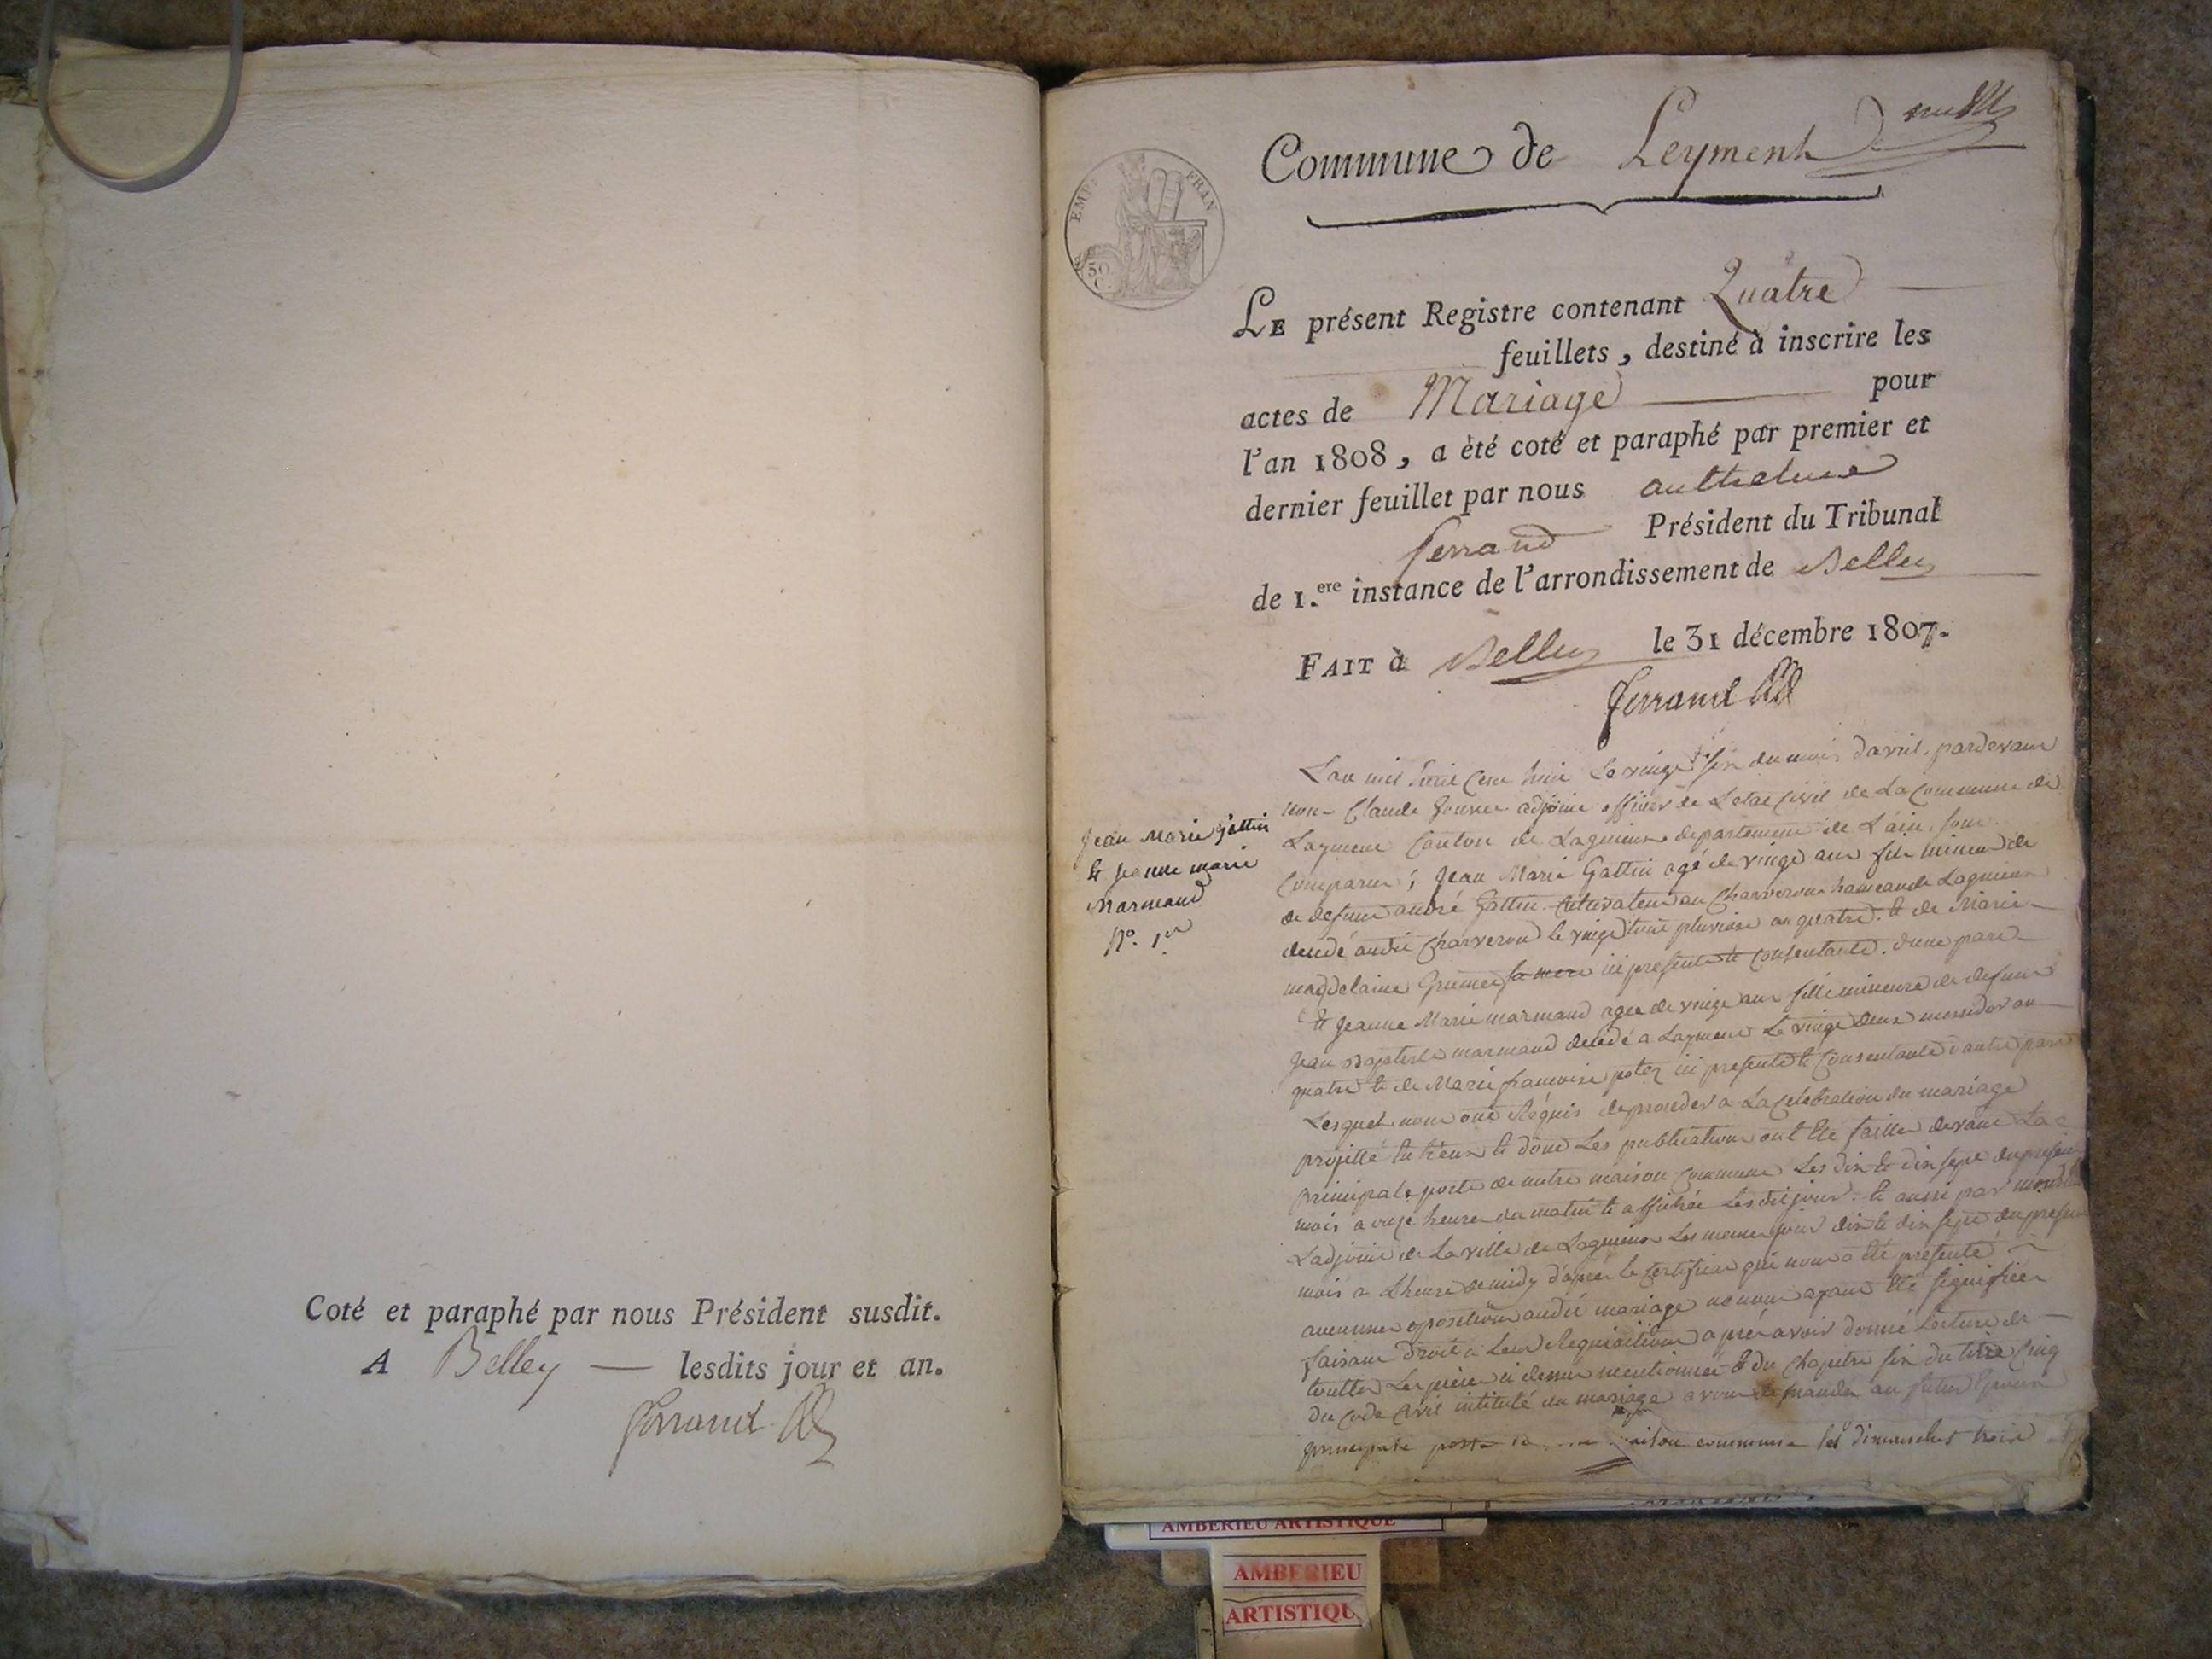 Coté et paraphé par nous Président susdit.
A Belley — lesdits jour et an.
ferrand
Commune de Leyment
EMP. FRAN
50
C.
LE présent Registre contenant Quatre
feuillets, destiné à inscrire les
actes de Mariage pour
l'an 1808, a été coté et paraphé par premier et
dernier feuillet par nous anthelme
ferrand Président du Tribunal
de 1.ere instance de l'arrondissement de Belley
FAIT à Belley le 31 décembre 1807.
ferrand
Jean Marie gattin
et jeanne marie
Marmand
No. 1er
L'an mil huit cent huit le vingt six du mois davril, pardevant
nous Claude adjoint officier de Letat civil de La commune de
Layment Canton de Lagnieux departement de L'ain, sont
comparus; Jean Marie Gattin agé de vingt ans fils mineur de
de defunt andré Gattin Cultivateur au Charveron hameau de Lagnieux
decedé audit Charveron le vingt huit pluviose an quatre. et de Marie
magdelaine sa mere ici presente et consentante. dune part
Et Jeanne Marie marmand agee de vingt ans fille mineure de defunt
Jean Baptiste marmand decedé a Layment Le vingt deux messidor an
quatre et de Marie francoise ici presente et Consentante d'autre part
Lesquels nous ont Requis de proceder a La Celebration du mariage
projetté entreux et dont Les publications ont été faittes devant La
principale porte de notre maison commune Les dix et dix sept du present
mois a onze heures du matin et affichée Lesdit jour. et aussi par
Ladjoint de La ville de Lagnieux Les meme jour dix et dix sept du present
mois a Lheure de midy d'apres le certificat qui nous a été presenté
aucunne oposition audit mariage ne nous ayant été signifiée
faisant droit a Leur Requisition apres avoir donné Lecture de
touttes Les pieces ci dessus mentionnée et du chapitre six du titre cinq
du code Civil intitulé du mariage avons demandé au futur Epoux
principale porte de maison commune les dimanches trois
AMBERIEU ARTISTIQUE
AMBERIEU
ARTISTIQU